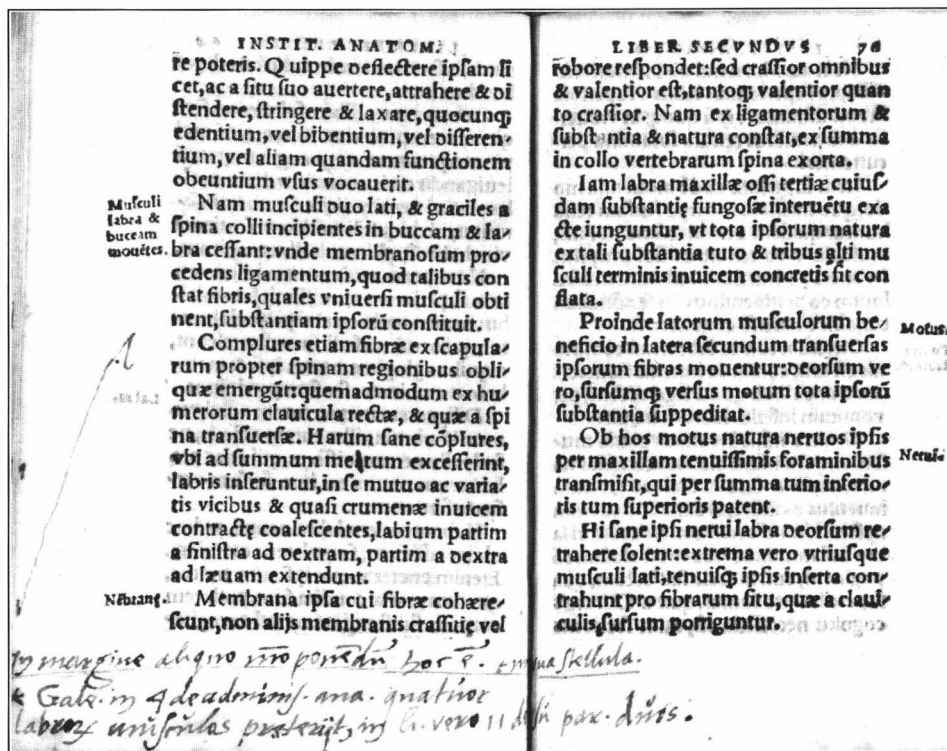 INSTIT. ANATOM.
re poteris. Quippe deflectere ipsam li
cet, ac a situ suo auertere, attrahere & di
stendere, stringere & laxare, quocunq;
edentium, vel bibentium, vel disseren-
tium, vel aliam quandam functionem
obeuntium vsus vocauerit.
Musculi
labra &
buccam
mouẽtes.
Nam musculi duo lati, & graciles a
spina colli incipientes in buccam & la-
bra cessant: vnde membranosum pro-
cedens ligamentum, quod talibus con
stat fibris, quales vniuersi musculi obti
nent, substantiam ipsorũ constituit.
Complures etiam fibræ ex scapula-
rum propter spinam regionibus obli-
quæ emergũt: quemadmodum ex hu-
merorum clauicula rectæ, & quæ a spi
na transuersæ. Harum sane cõplures,
vbi ad summum metum excesserint,
labris inseruntur, in se mutuo ac varia-
tis vicibus & quasi crumenæ inuicem
contractę coalescentes, labium partim
a sinistra ad dextram, partim a dextra
ad læuam extendunt.
Mẽbrane.
Membrana ipsa cui fibræ cohære-
scunt, non alijs membranis crassitię vel
LIBER SECVNDVS
robore respondet: sed crassior omnibus
& valentior est, tantoq; valentior quan
to crassior. Nam ex ligamentorum &
substantia & natura constat, ex summa
in collo vertebrarum spina exorta.
Iam labra maxillæ ossi tertiæ cuius-
dam substantię fungosæ interuẽtu exa
cte iunguntur, vt tota ipsorum natura
ex tali substantia tuto & tribus alti mu
sculi terminis inuicem concretis sit con
flata.
Proinde latorum musculorum be-
neficio in latera secundum transuersas
ipsorum fibras mouentur: deorsum ve
ro, sursumq; versus motum tota ipsorũ
substantia suppeditat.
Motus.
Ob hos motus natura neruos ipsis
per maxillam tenuissimis foraminibus
transmisit, qui per summa tum inferio-
ris tum superioris patent.
Nerui.
Hi sane ipsi nerui labra deorsum re-
trahere solent: extrema vero vtriusque
musculi lati, tenuisq; ipsis inserta con-
trahunt pro fibrarum situ, quæ a claui-
culis, sursum porriguntur.
In margine aliquo mõ ponendũ hoc ẽ. stellula.
Gale. in 4 de adminis. ana. quatuor
musculos preterijt, in li. vero 11 par.